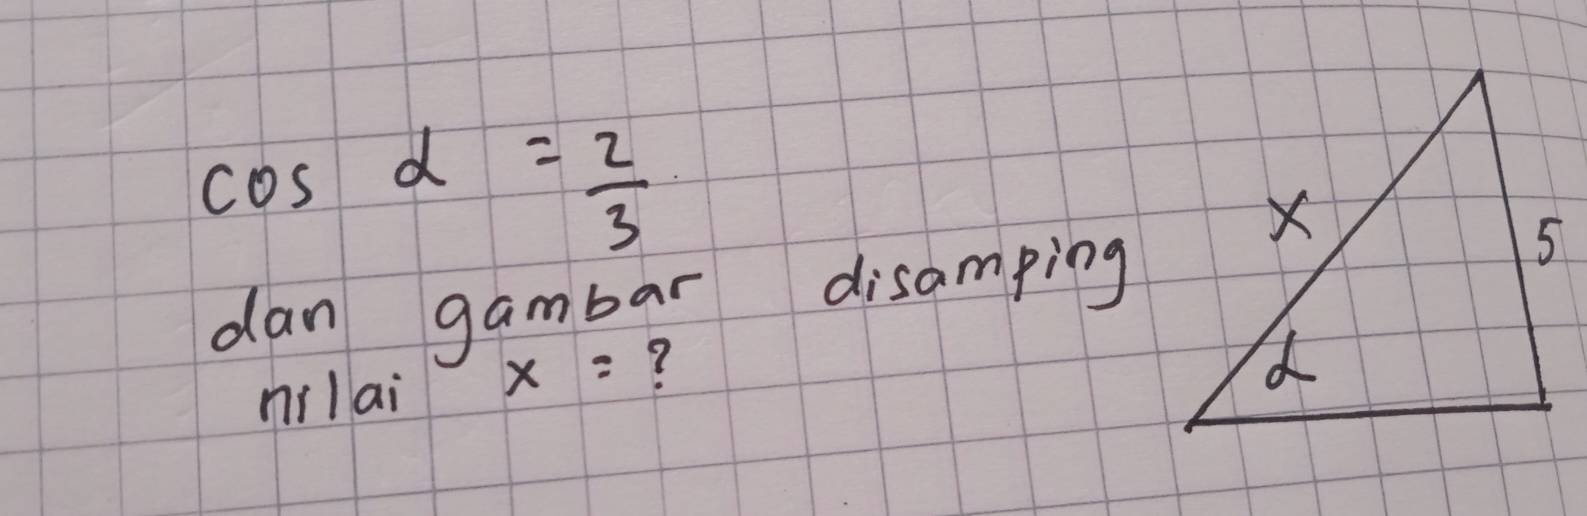 cos α = 2/3
dan gambar disamping
nilai x = ?
x
5
α